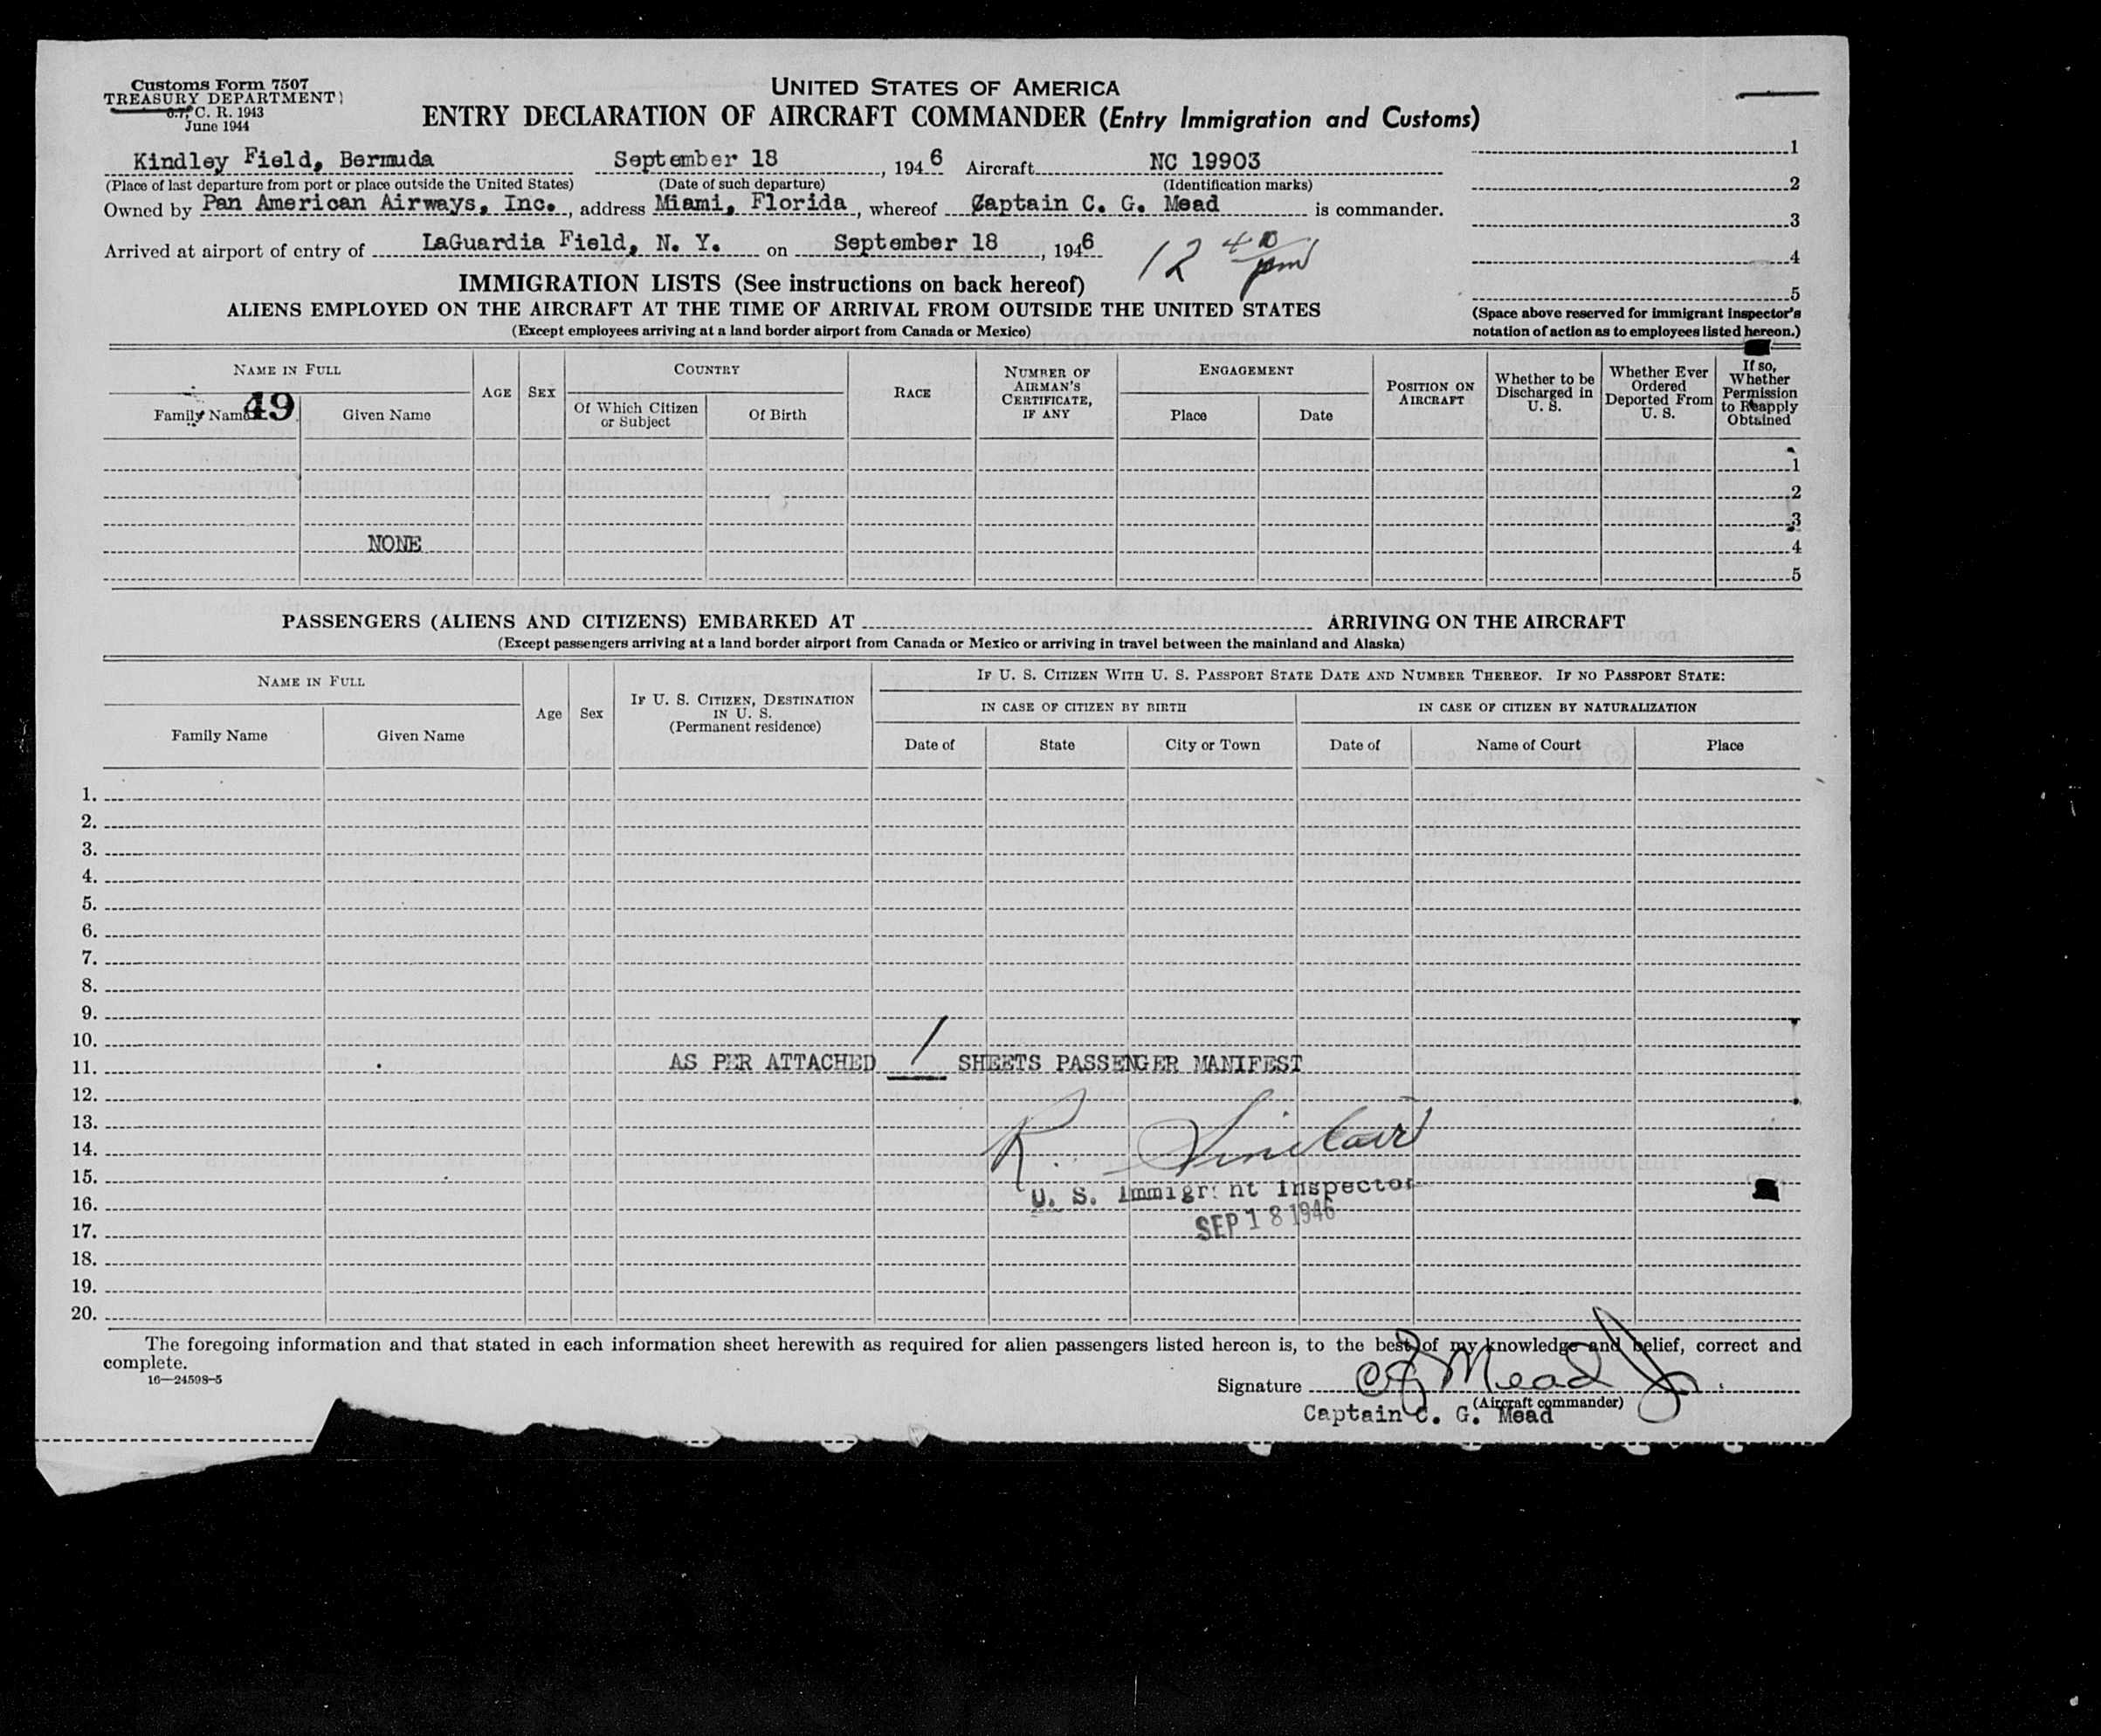 Customs Form 7507
TREASURY DEPARTMENT
C. R. 1943
June 1944
UNITED STATES OF AMERICA
ENTRY DECLARATION OF AIRCRAFT COMMANDER (Entry Immigration and Customs)
Kindley Field, Bermuda September 18, 1946 Aircraft NC 19903
(Place of last departure from port or place outside the United States) (Date of such departure) (Identification marks)
Owned by Pan American Airways, Inc., address Miami, Florida, whereof Captain C. G. Mead is commander.
Arrived at airport of entry of LaGuardia Field, N. Y. on September 18, 1946 12 40 pm
1
2
3
4
5
(Space above reserved for immigrant inspector's notation of action as to employees listed hereon.)
IMMIGRATION LISTS (See instructions on back hereof)
ALIENS EMPLOYED ON THE AIRCRAFT AT THE TIME OF ARRIVAL FROM OUTSIDE THE UNITED STATES
(Except employees arriving at a land border airport from Canada or Mexico)
NAME IN FULL
Family Name 49 Given Name
AGE SEX
COUNTRY
Of Which Citizen or Subject Of Birth
RACE
NUMBER OF AIRMAN'S CERTIFICATE, IF ANY
ENGAGEMENT
Place Date
POSITION ON AIRCRAFT
Whether to be Discharged in U. S.
Whether Ever Ordered Deported From U. S.
If so, Whether Permission to Reapply Obtained
1
2
3
NONE 4
5
PASSENGERS (ALIENS AND CITIZENS) EMBARKED AT ARRIVING ON THE AIRCRAFT
(Except passengers arriving at a land border airport from Canada or Mexico or arriving in travel between the mainland and Alaska)
NAME IN FULL
Family Name Given Name
Age Sex
IF U. S. CITIZEN, DESTINATION IN U. S. (Permanent residence)
IF U. S. CITIZEN WITH U. S. PASSPORT STATE DATE AND NUMBER THEREOF. IF NO PASSPORT STATE:
IN CASE OF CITIZEN BY BIRTH IN CASE OF CITIZEN BY NATURALIZATION
Date of State City or Town Date of Name of Court Place
1.
2.
3.
4.
5.
6.
7.
8.
9.
10.
11. AS PER ATTACHED 1 SHEETS PASSENGER MANIFEST
12.
13.
14. R. Sinclair
15.
16. U. S. Immigrant Inspector
17. SEP 18 1946
18.
19.
20.
The foregoing information and that stated in each information sheet herewith as required for alien passengers listed hereon is, to the best of my knowledge and belief, correct and
complete.
16—24598-5
Signature C G Mead Jr
(Aircraft commander)
Captain C. G. Mead